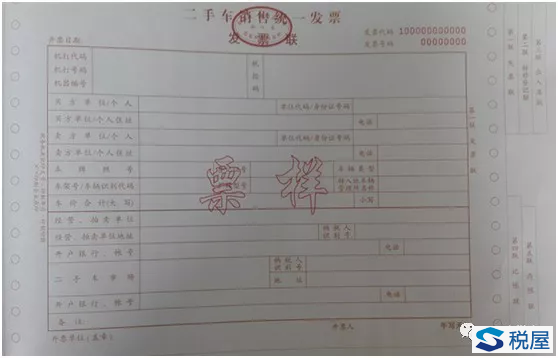 二手车销售统一发票
发票联
开票日期
发票代码 100000000000
发票号码 00000000
机打代码
机打号码
机器编号
税控码
买方单位/个人 单位代码/身份证号码
买方单位/个人住址 电话
卖方单位/个人 单位代码/身份证号码
卖方单位/个人住址 电话
车牌照号 车辆类型
车架号/车辆识别代码 转入地车辆管理所名称
车价合计(大写) 小写
票样
经营、拍卖单位
经营、拍卖单位地址 纳税人识别号
开户银行、帐号 电话
二手车市场 纳税人识别号
地址
开户银行、账号 电话
备注:
开票单位(盖章) 开票人
第一联 发票联
第二联 转移登记联
第三联 出入库联
第四联 记账联
第五联 存根联
税屋